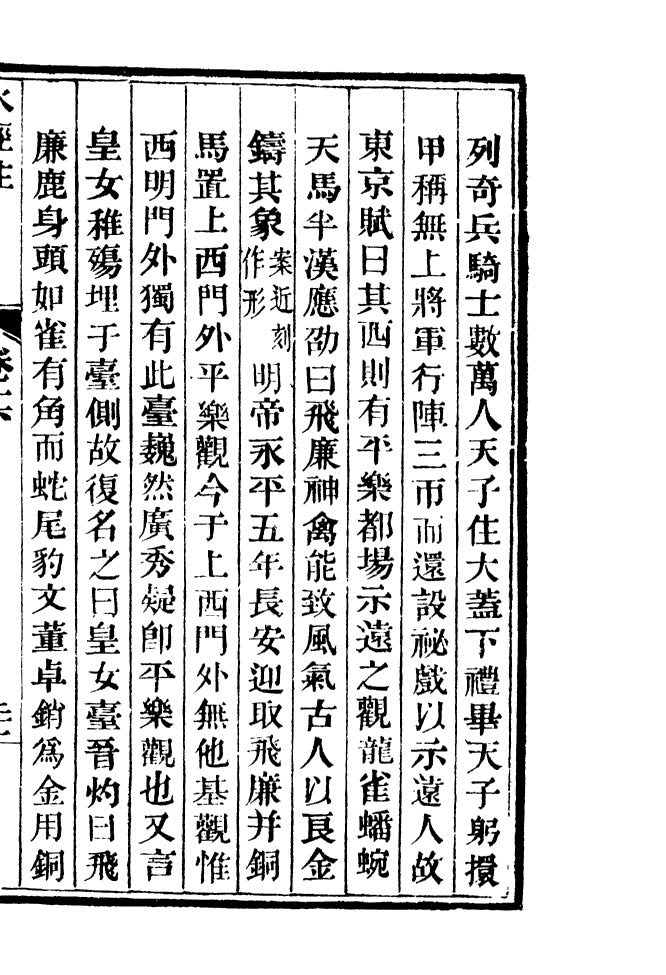 列奇兵騎士數萬人天子住大蓋下禮畢天子躬擐
甲稱無上將軍行陣三帀而還設祕戲以示遠人故
東京賦曰其西則有平樂都場示遠之觀龍雀蟠蜿
天馬半漢應劭曰飛廉神禽能致風氣古人以良金
鑄其象案近刻作形明帝永平五年長安迎取飛廉并銅
馬置上西門外平樂觀今于上西門外無他基觀惟
西明門外獨有此臺巍然廣秀疑卽平樂觀也又言
皇女稚殤埋于臺側故復名之曰皇女臺晉灼曰飛
廉鹿身頭如雀有角而蛇尾豹文董卓銷爲金用銅
水經注
卷十六